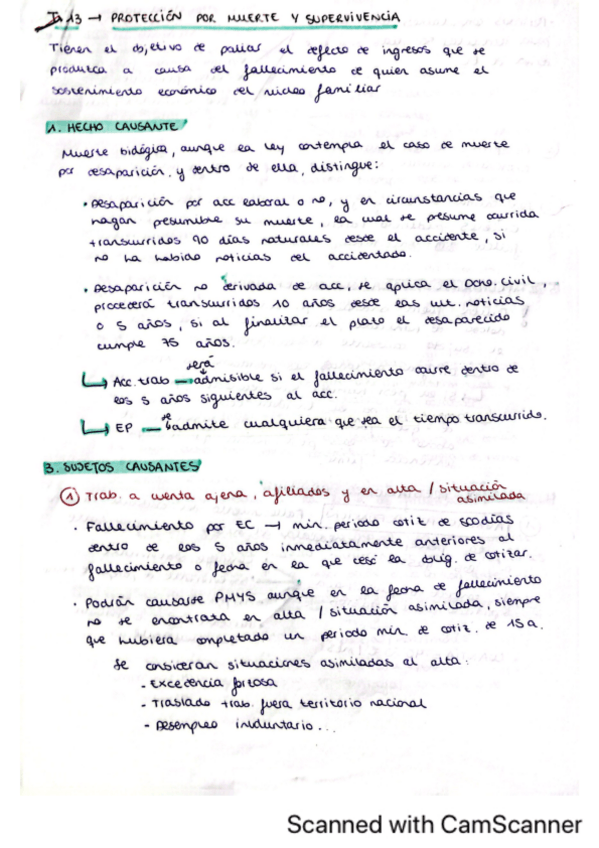 T. 13 → PROTECCIÓN POR MUERTE Y SUPERVIVENCIA
Tienen el objetivo de paliar el defecto de ingresos que se
produzca a causa del fallecimiento de quien asume el
sostenimiento económico del núcleo familiar
1. HECHO CAUSANTE
Muerte biológica, aunque la ley contempla el caso de muerte
por desaparición, y dentro de ella, distingue:
· Desaparición por acc laboral o no, y en circunstancias que
hagan presumible su muerte, la cual se presume ocurrida
transcurridos 90 días naturales desde el accidente, si
no ha habido noticias del accidentado.
· Desaparición no derivada de acc, se aplica el Dcho. civil,
procederá transcurridos 10 años desde las ult. noticias
o 5 años, si al finalizar el plazo el desaparecido
cumple 75 años.
↳ Acc. trab → será admisible si el fallecimiento ocurre dentro de
los 5 años siguientes al acc.
↳ EP — se admite cualquiera que sea el tiempo transcurrido.
3. SUJETOS CAUSANTES
① Trab. a cuenta ajena, afiliados y en alta / situación
asimilada
· Fallecimiento por EC → min. periodo cotiz de 500 días
dentro de los 5 años inmediatamente anteriores al
fallecimiento o fecha en la que cesó la oblig. de cotizar.
· Podrán causarse PMYS aunque en la fecha de fallecimiento
no se encontrara en alta / situación asimilada, siempre
que hubiera completado un periodo mín. de cotiz. de 15 a.
Se consideran situaciones asimiladas al alta:
- Excedencia forzosa
- Traslado trab. fuera territorio nacional
- Desempleo involuntario...
Scanned with CamScanner